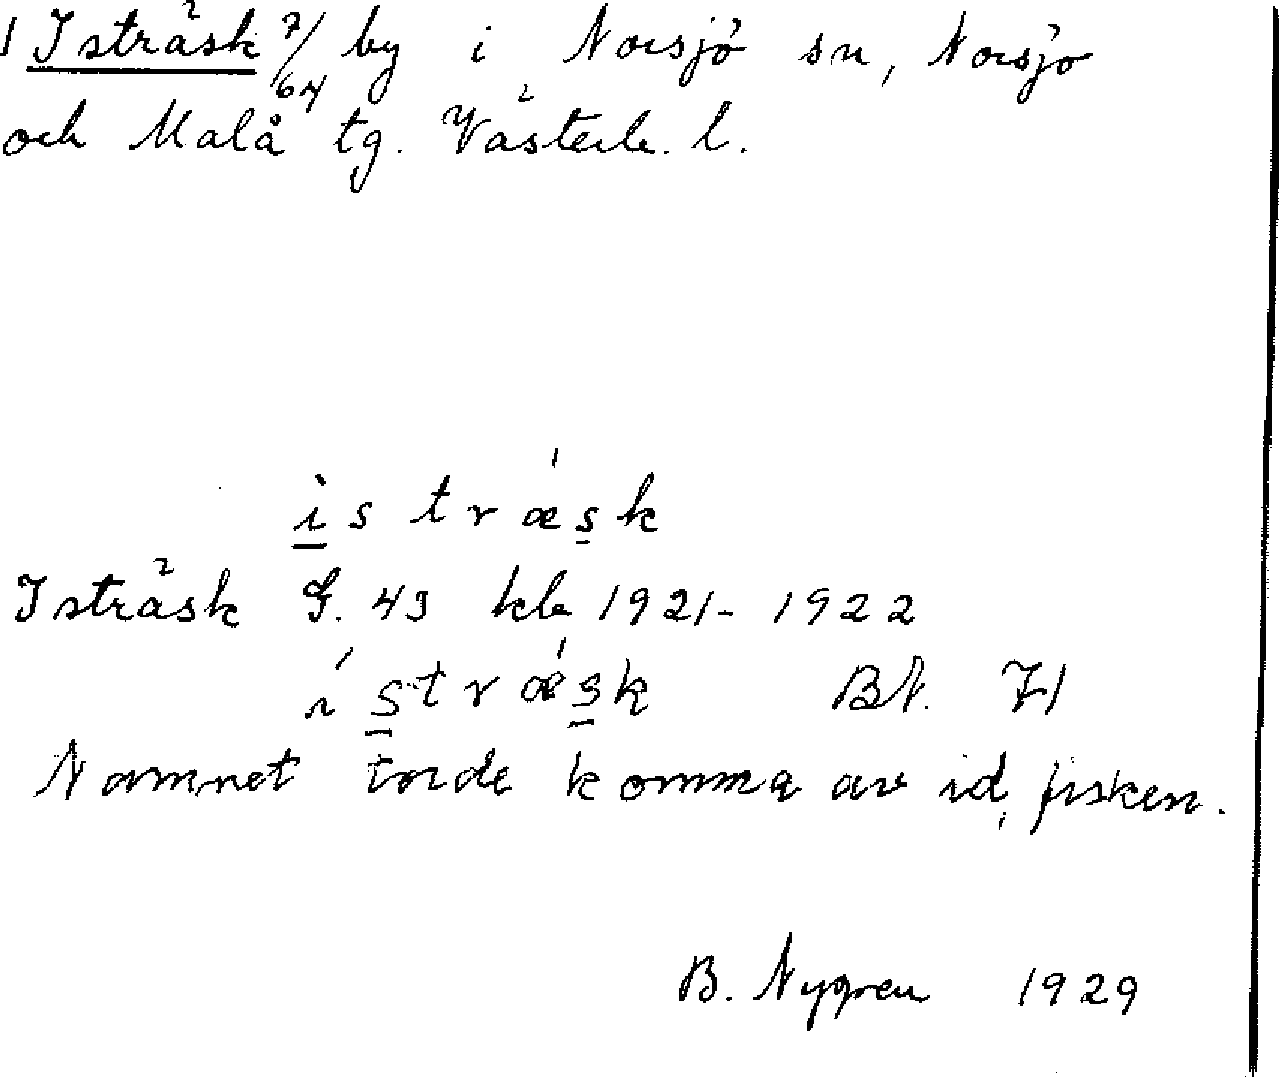 1 Isträsk 7/64 by i Norsjö sn, Norsjö
och Malå tg. Västerb. l.
ì̲ s t r ǽ s̲ k
Isträsk G. 43 kb 1921-1922
í s̲ t r ǽ s̲ k BN. 71
Namnet torde komma av id, fisken.
B. Nygren 1929